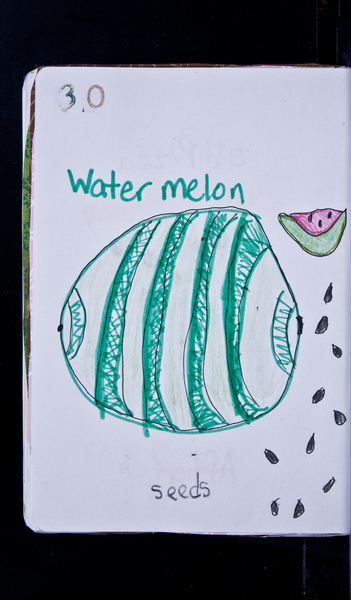 3.0
Water melon
seeds